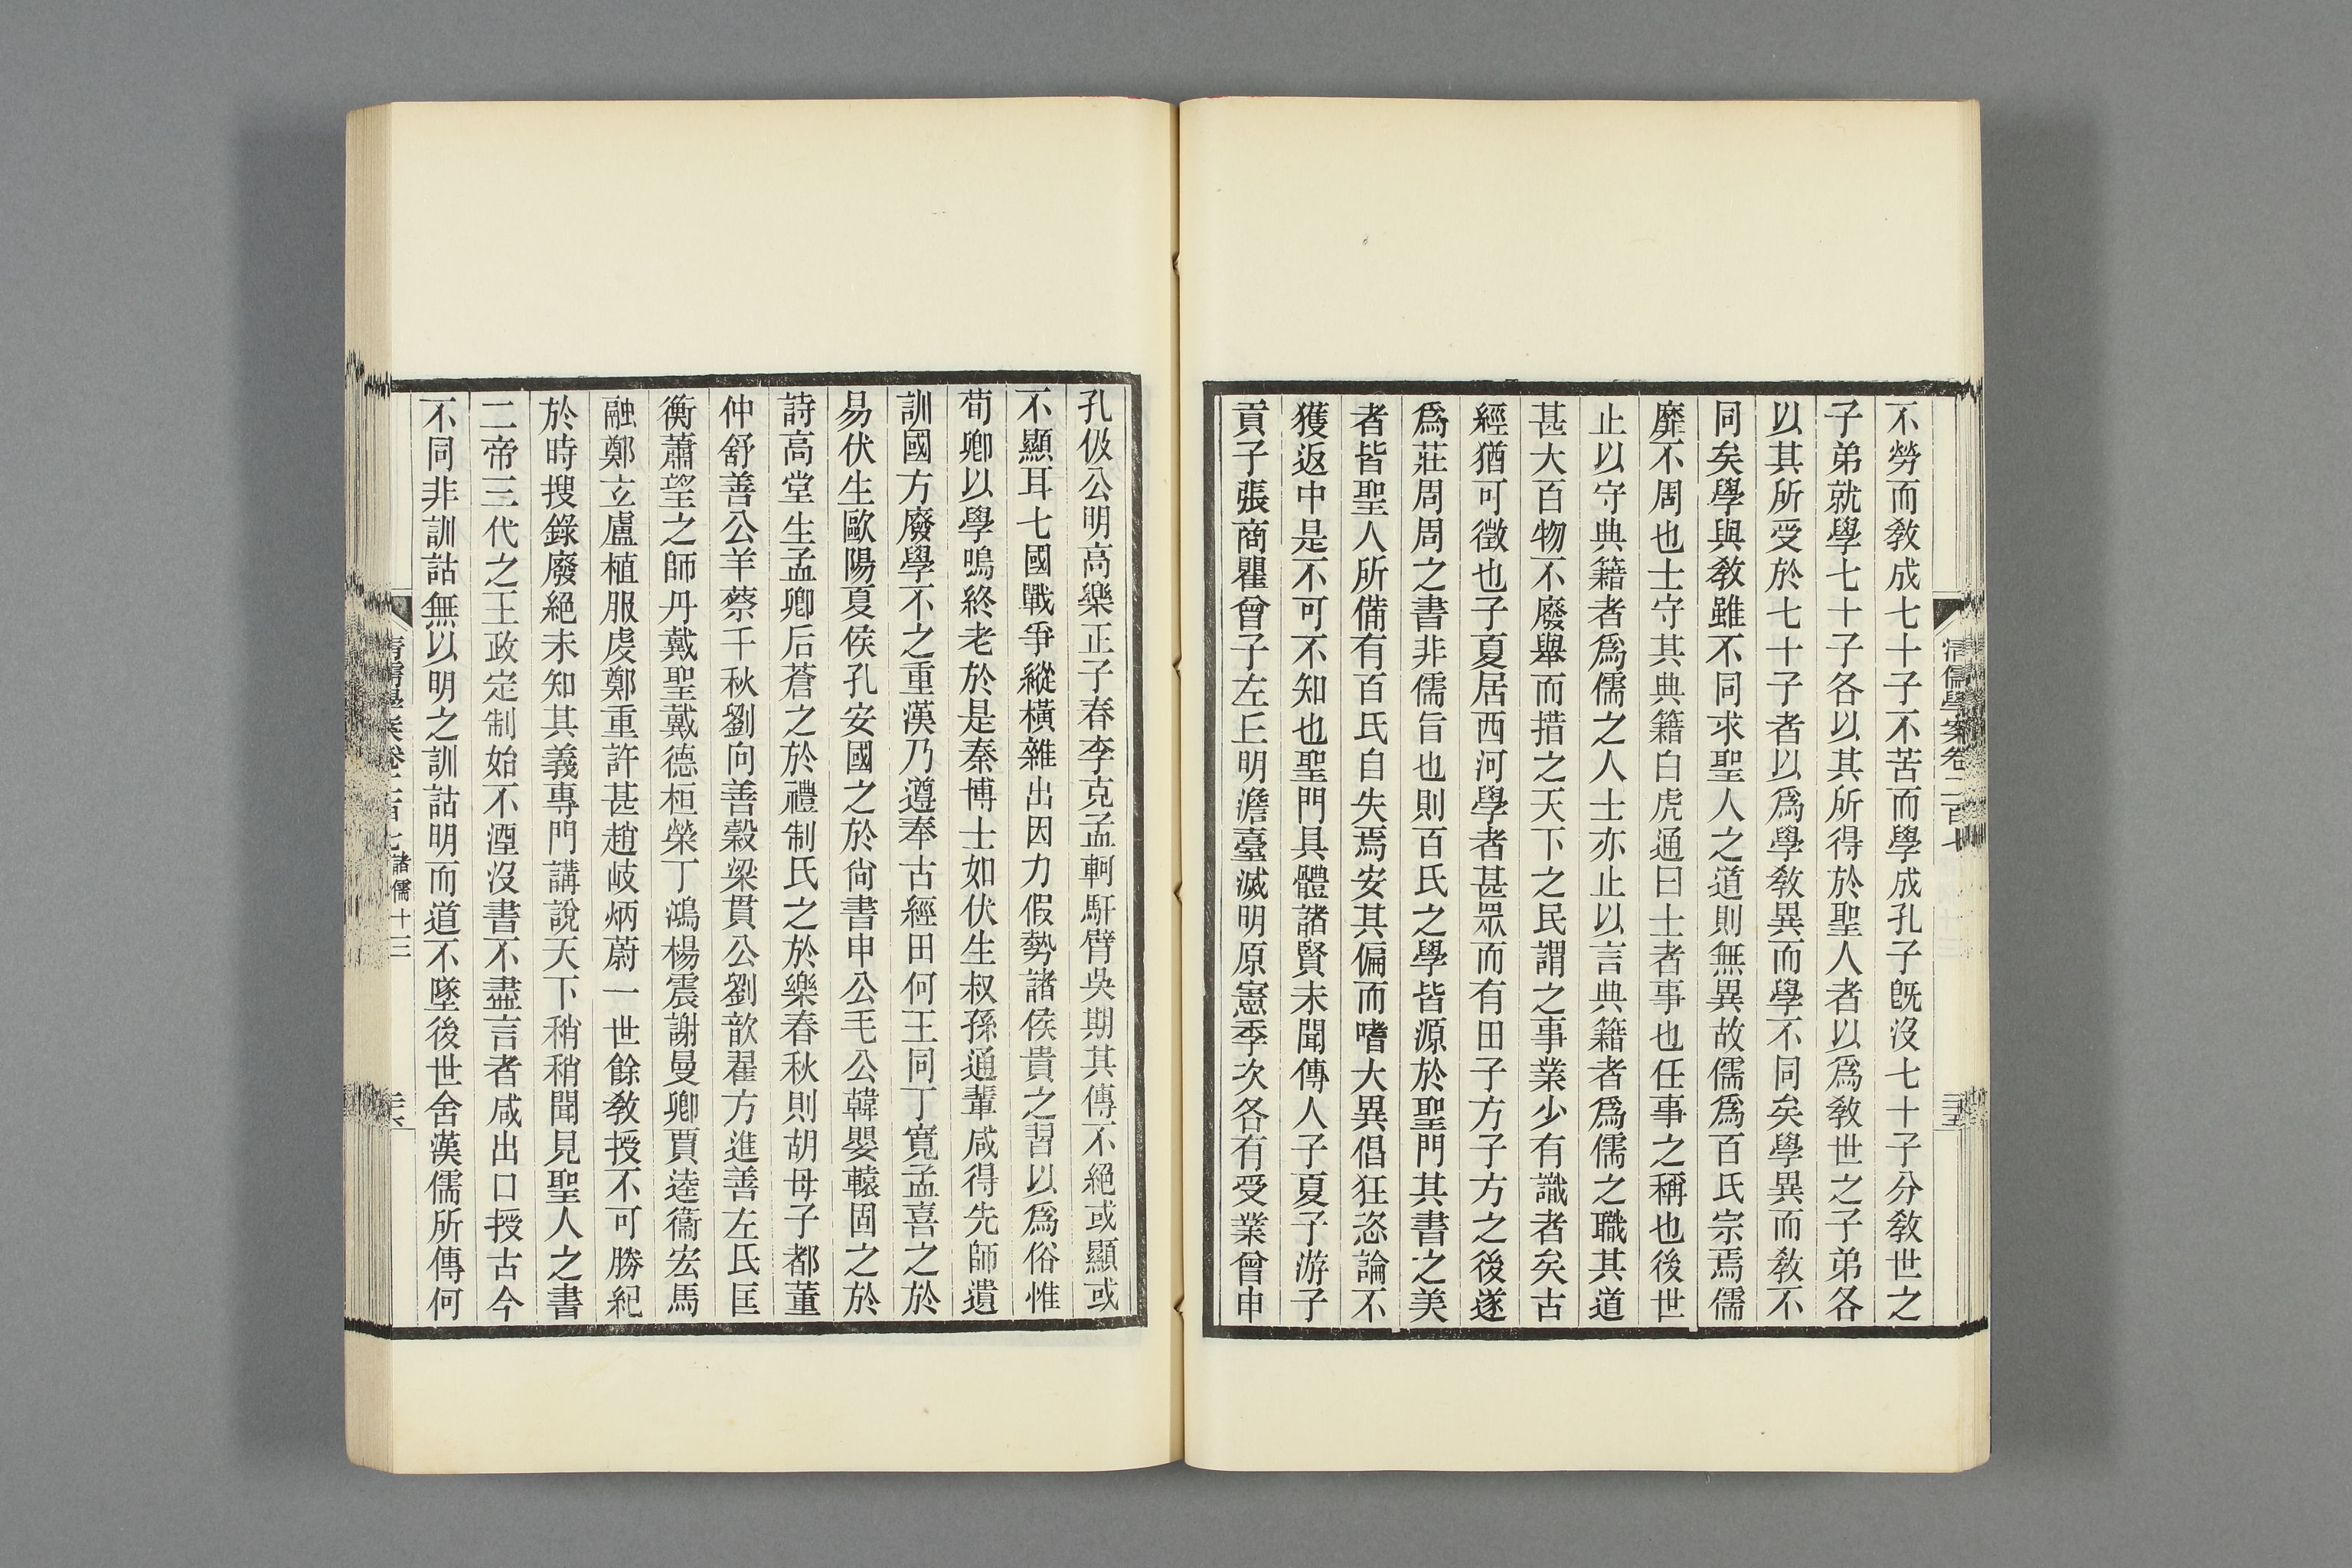 不勞而敎成七十子不苦而學成孔子旣沒七十子分敎世之
子弟就學七十子各以其所得於聖人者以爲敎世之子弟各
以其所受於七十子者以爲學敎異而學不同矣學異而敎不
同矣學與敎雖不同求聖人之道則無異故儒爲百氏宗焉儒
靡不周也士守其典籍白虎通曰士者事也任事之稱也後世
止以守典籍者爲儒之人士亦止以言典籍者爲儒之職其道
甚大百物不廢舉而措之天下之民謂之事業少有識者矣古
經猶可徵也子夏居西河學者甚眾而有田子方子方之後遂
爲莊周周之書非儒旨也則百氏之學皆源於聖門其書之美
者皆聖人所備有百氏自失焉安其偏而嗜大異倡狂恣論不
獲返中是不可不知也聖門具體諸賢未聞傳人子夏子游子
貢子張商瞿曾子左丘明澹臺滅明原憲季次各有受業曾申
清儒學案卷二百七
孔伋公明高樂正子春李克孟軻馯臂吳期其傳不絕或顯或
不顯耳七國戰爭縱橫雜出因力假勢諸侯貴之習以爲俗惟
荀卿以學鳴終老於是秦博士如伏生叔孫通輩咸得先師遺
訓國方廢學不之重漢乃遵奉古經田何王同丁寬孟喜之於
易伏生歐陽夏侯孔安國之於尙書申公毛公韓嬰轅固之於
詩高堂生孟卿后蒼之於禮制氏之於樂春秋則胡母子都董
仲舒善公羊蔡千秋劉向善穀梁貫公劉歆翟方進善左氏匡
衡蕭望之師丹戴聖戴德桓榮丁鴻楊震謝曼卿賈逵衞宏馬
融鄭玄盧植服虔鄭重許甚趙岐炳蔚一世餘敎授不可勝紀
於時搜錄廢絕未知其義專門講說天下稍稍聞見聖人之書
二帝三代之王政定制始不湮沒書不盡言者咸出口授古今
不同非訓詁無以明之訓詁明而道不墜後世舍漢儒所傳何
清儒學案卷二百七 諸儒十三